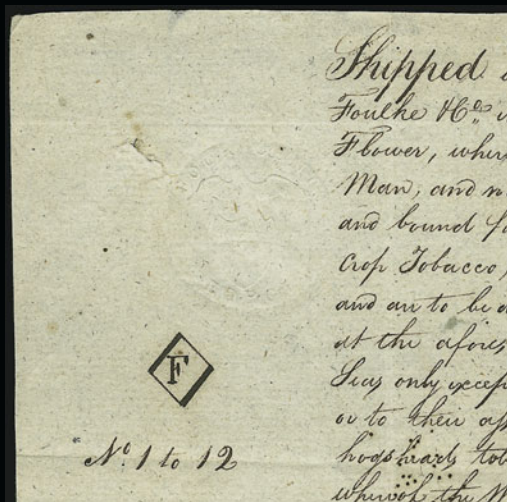 Shipped
Foulke & Co.
Flower, wher
Man, and n
and bound fo
Crop Tobacco,
and are to be d
at the afores
Seas only excep
or to their ass
F
hogsheads tob
No. 1 to 12
whereof the M